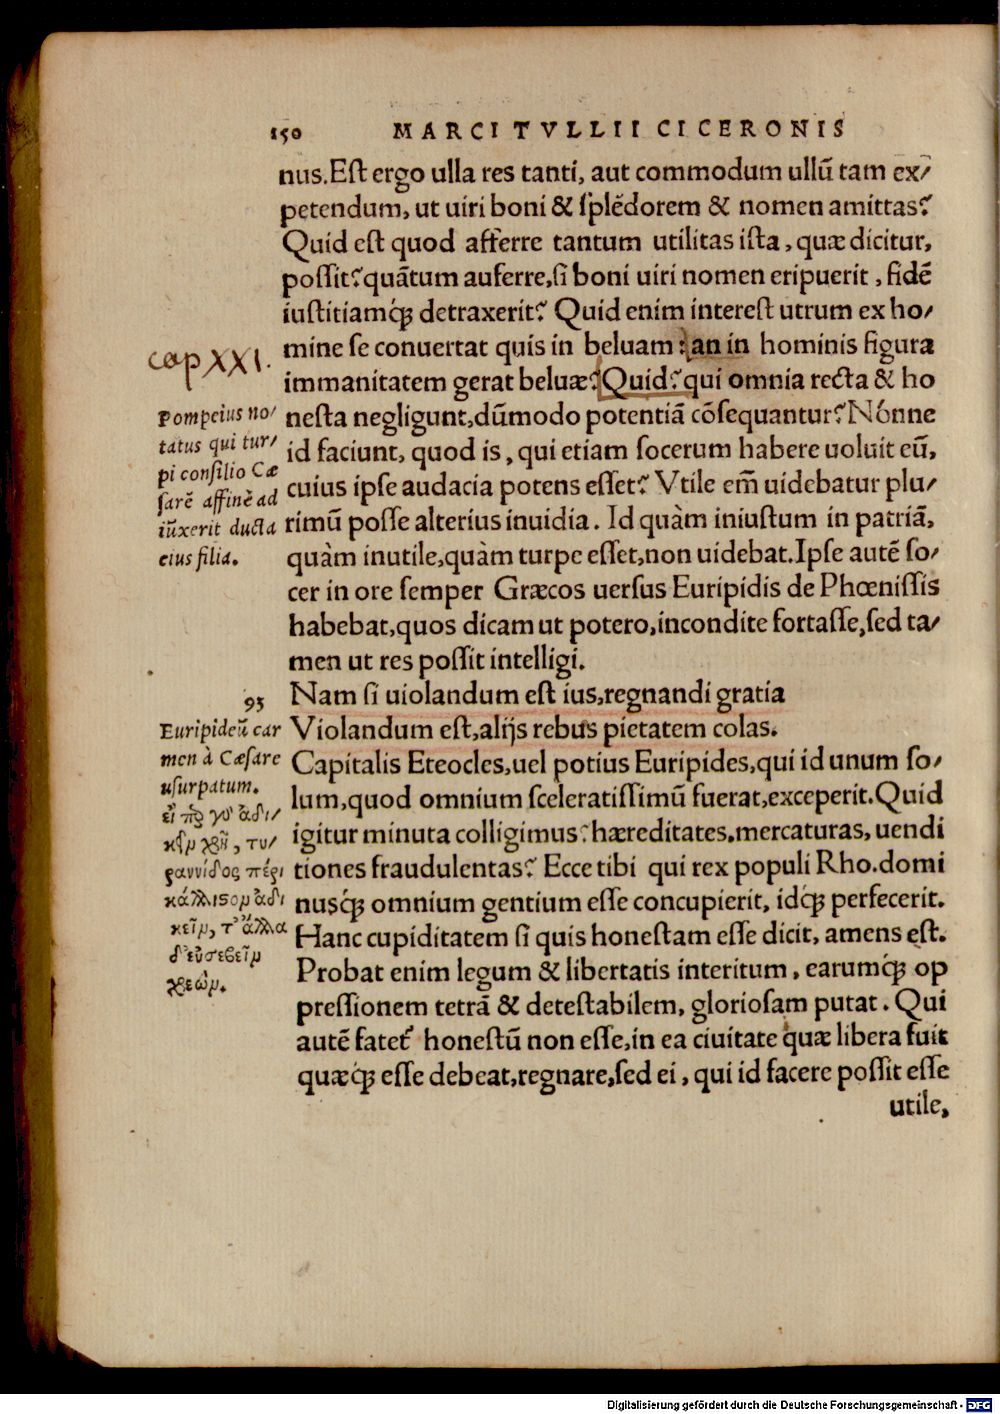 150 MARCI TVLLII CICERONIS
nus.Est ergo ulla res tanti, aut commodum ullũ tam ex/
petendum, ut uiri boni & splẽdorem & nomen amittas?
Quid est quod afferre tantum utilitas ista, quæ dicitur,
possit? quãtum auferre, si boni uiri nomen eripuerit, fidẽ
iustitiamq́; detraxerit? Quid enim interest utrum ex ho/
mine se conuertat quis in beluam: an in hominis figura
immanitatem gerat beluæ? Quid? qui omnia recta & ho
nesta negligunt, dũmodo potentiã cõsequantur? Nónne
id faciunt, quod is, qui etiam socerum habere uoluit eũ,
cuius ipse audacia potens esset? Vtile em̃ uidebatur plu/
rimũ posse alterius inuidia. Id quàm iniustum in patriã,
quàm inutile, quàm turpe esset, non uidebat. Ipse autẽ so/
cer in ore semper Græcos uersus Euripidis de Phœnissis
habebat, quos dicam ut potero, incondite fortasse, sed ta/
men ut res possit intelligi.
Nam si uiolandum est ius, regnandi gratia
Violandum est, alijs rebus pietatem colas.
Capitalis Eteocles, uel potius Euripides, qui id unum so/
lum, quod omnium sceleratissimũ fuerat, exceperit. Quid
igitur minuta colligimus? hæreditates, mercaturas, uendi
tiones fraudulentas? Ecce tibi qui rex populi Rho. domi
nusq́; omnium gentium esse concupierit, idq́; perfecerit.
Hanc cupiditatem si quis honestam esse dicit, amens est.
Probat enim legum & libertatis interitum, earumq́; op
pressionem tetrã & detestabilem, gloriosam putat. Qui
autẽ fatet' honestũ non esse, in ea ciuitate quæ libera fuit
quæq́; esse debeat, regnare, sed ei, qui id facere possit esse
utile,
Cap XXI.
Pompeius no/
tatus qui tur/
pi consilio Cæ
sarẽ affinẽ ad
iũxerit ducta
eius filia.
93
Euripideũ car
men à Cæsare
usurpatum.
εἴ πὲρ γὸ ἀδι/
κεῖμ χρὴ, τυ/
ραννίδος πέρι
κάλλιστομ ἀδι
κεῖμ, τ' ἄλλα
δ' εὐσεβεῖμ
χρεώμ.
Digitalisierung gefördert durch die Deutsche Forschungsgemeinschaft - DFG